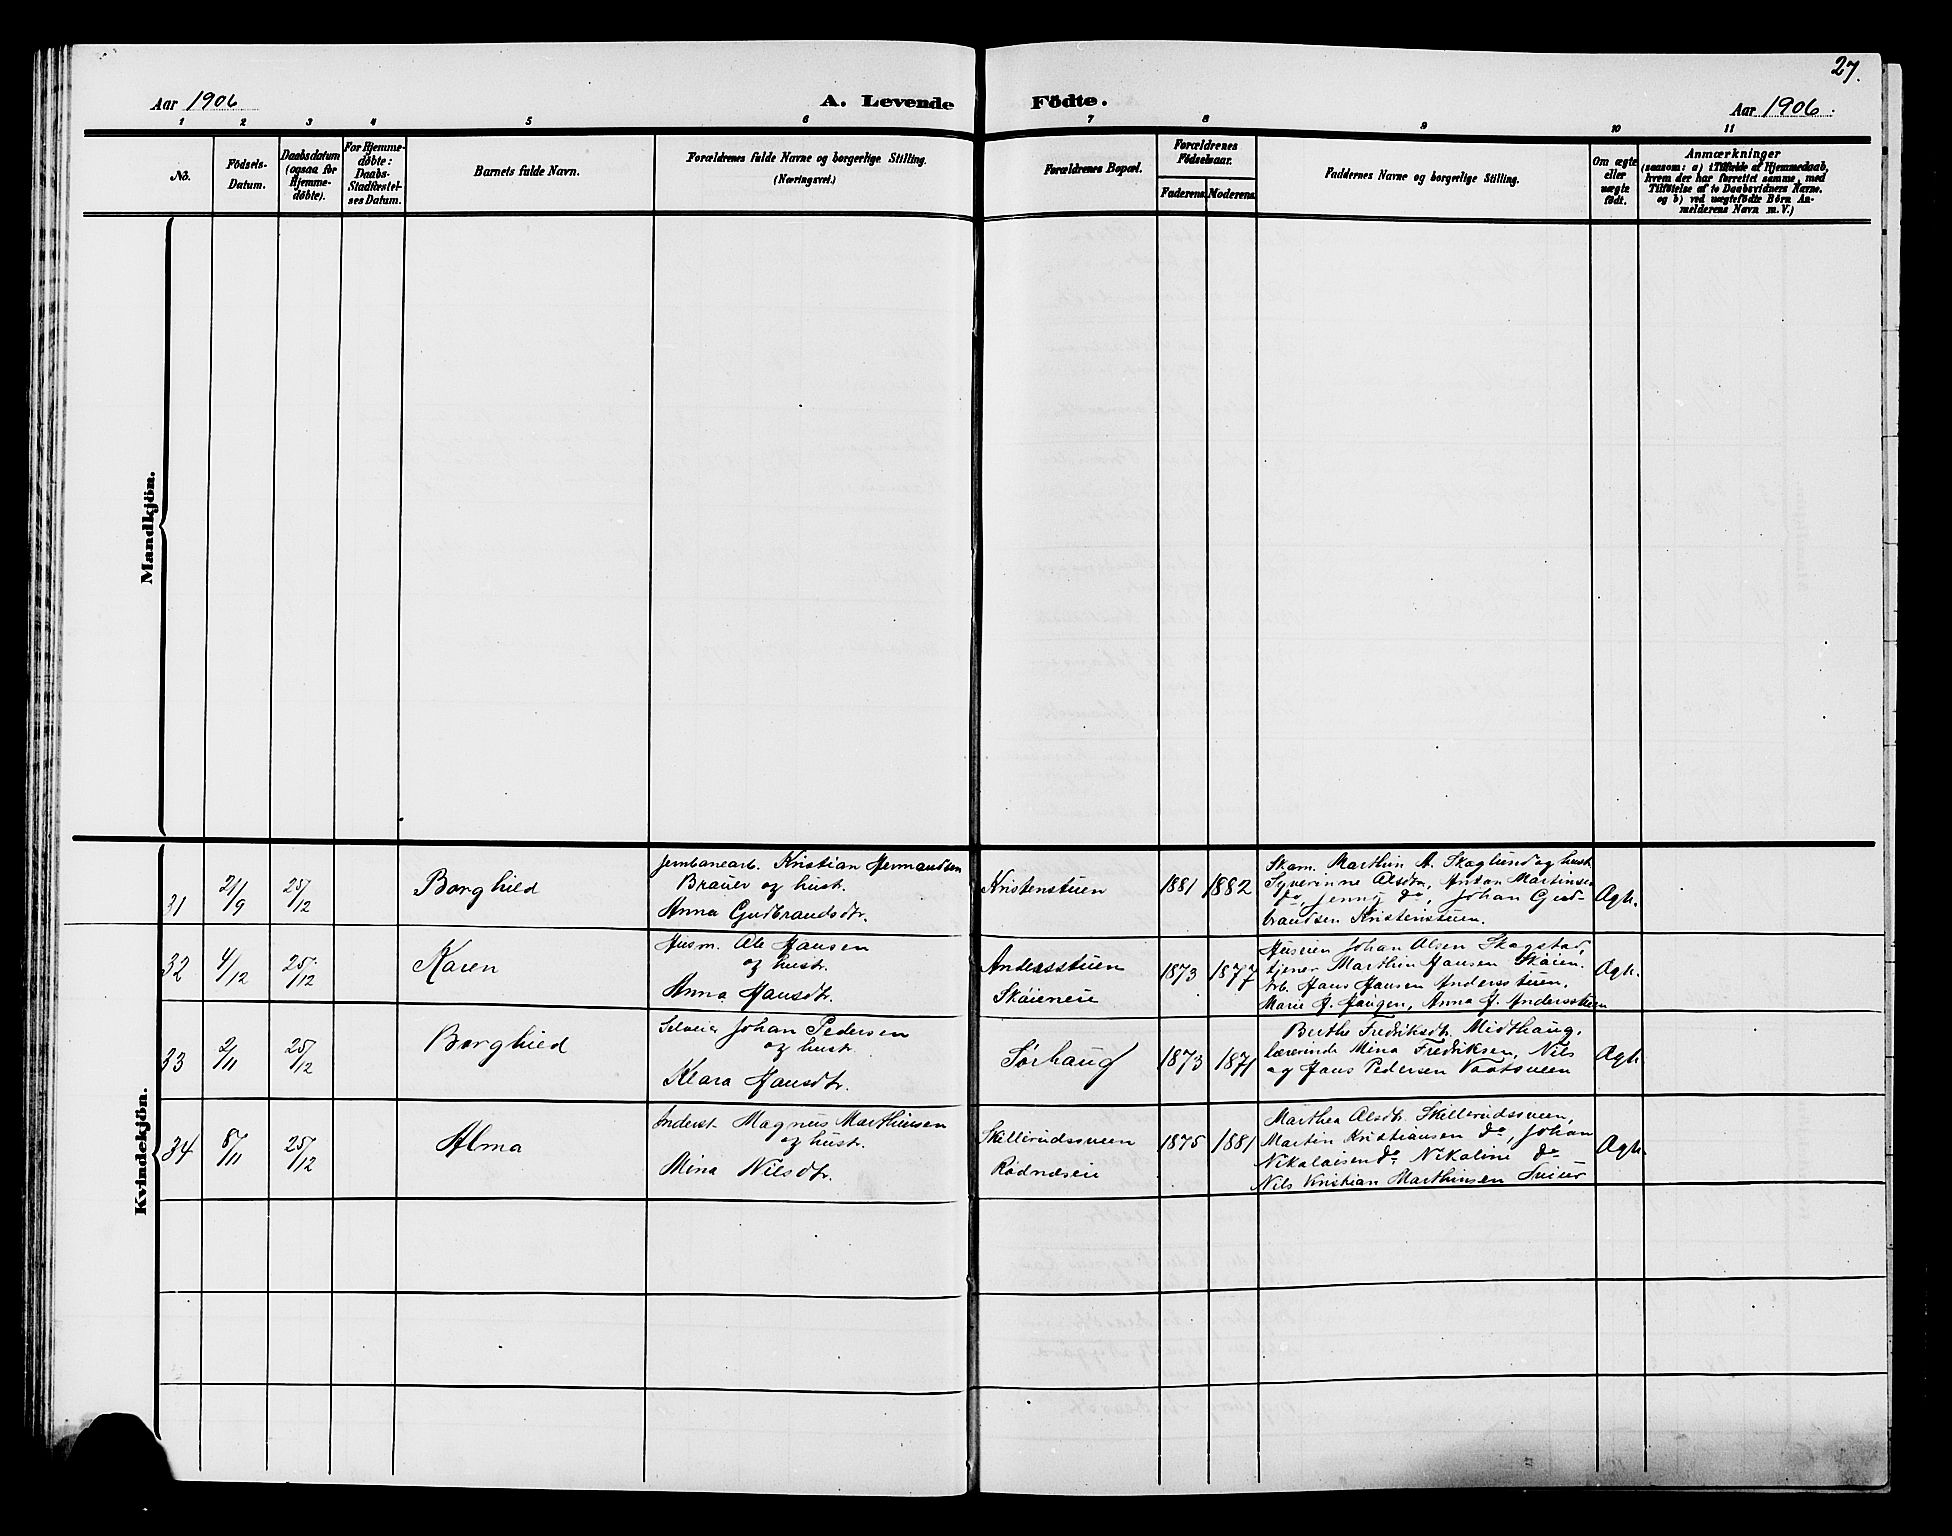 27.
Aar 1906
A. Levende Födte.
Aar 1906.
1 2 3 4 5 6 7 8 9 10 11
No.
Födsels-
Datum.
Daabsdatum
(ogsaa for
Hjemme-
døbte).
For Hjemme-
døbte:
Daabs-
Stadfæstel-
ses Datum.
Barnets fulde Navn.
Forældrenes fulde Navne og borgerlige Stilling.
(Næringsvei.)
Forældrenes Bopæl.
Forældrenes
Födselsaar.
Faderens.
Moderens.
Faddernes Navne og borgerlige Stilling.
Om ægte
eller
uægte
født.
Anmærkninger
(saasom: a) i Tilfælde af Hjemmedaab,
hvem der har forrettet samme, med
Tilföielse af to Daabsvidners Navne.
og b) ved uægtefödte Börn An-
melderens Navn m. V.)
Mandkjön.
Kvindekjön.
31 2/9 25/12 Borghild
Jernbanearb. Kristian Hermandsen
Brauer og hustr.
Anna Gudbrandsdtr.
Kristenstuen 1881 1882
Skom. Marthin A. Skaglund og hustr.
Syverinne Olsdtr, Anton Martinsen
do, Jenny do, Johan Gud-
brandsen Kristenstuen.
Ægt.
32 4/12 25/12 Karen
Husm. Ole Hansen
og hustr.
Anna Hansdtr.
Andersstuen
Skøieneie
1873 1877
Huseier Johan Olsen Skagstad,
tjener Marthin Hansen Skøien.
arb. Hans Hansen Andersstuen,
Marie J. Haugen, Anna J. Andersstuen
Ægt.
33 2/11 25/12 Borghild
Selveier Johan Pedersen
og hustr.
Klara Hansdtr.
Sørhaug 1873 1871
Berthe Fredriksdtr. Midthaug,
lærerinde Mina Fredriksen, Nils
og Hans Pedersen
Ægt.
34 8/11 25/12 Alma
Inderst Magnus Marthinsen
og hustr.
Mina Nilsdtr.
Skillerudssveen
Rødnæseie
1875 1881
Marthea Olsdtr. Skillerudssveen,
Martin Kristiansen do, Johan
Nikolaisen do, Nikoline do
Nils Kristian Marthinsen
Ægt.